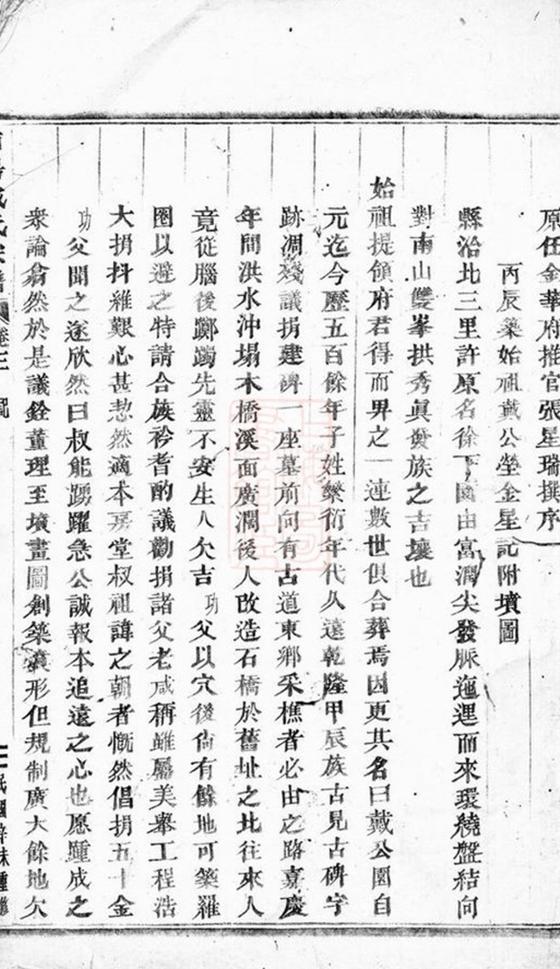 原任金華府推官張星瑞撰序
丙辰築始祖戴公塋金星記附墳圖
縣治北三里許原名徐下園由富潤尖發脈迤邐而來環繞盤結向
對南山雙峯拱秀眞發族之吉壤也
始祖提領府君得而畀之一連數世俱合葬焉因更其名曰戴公園自
元迄今歷五百餘年子姓繁衍年代久遠乾隆甲辰族古見古碑字
跡凋殘議捐建碑一座墓前向有古道東鄉采樵者必由之路嘉慶
年間洪水沖塌木橋溪面廣濶後人改造石橋於舊址之北往來人
竟從腦後躑躅先靈不安生人欠吉 功父以穴後尙有餘地可築羅
圈以避之特請合族衿耆酌議勸捐諸父老咸稱雖屬美舉工程浩
大捐抖維艱心甚愸然適本房堂叔祖諱之朝者慨然倡捐五十金
功父聞之遂欣然曰叔能踴躍急公誠報本追遠之心也愿踵成之
衆論翕然於是議銓董理至墳畫圖創築瀼形但規制廣大餘地欠
氏宗譜 卷三
民國辛未重修